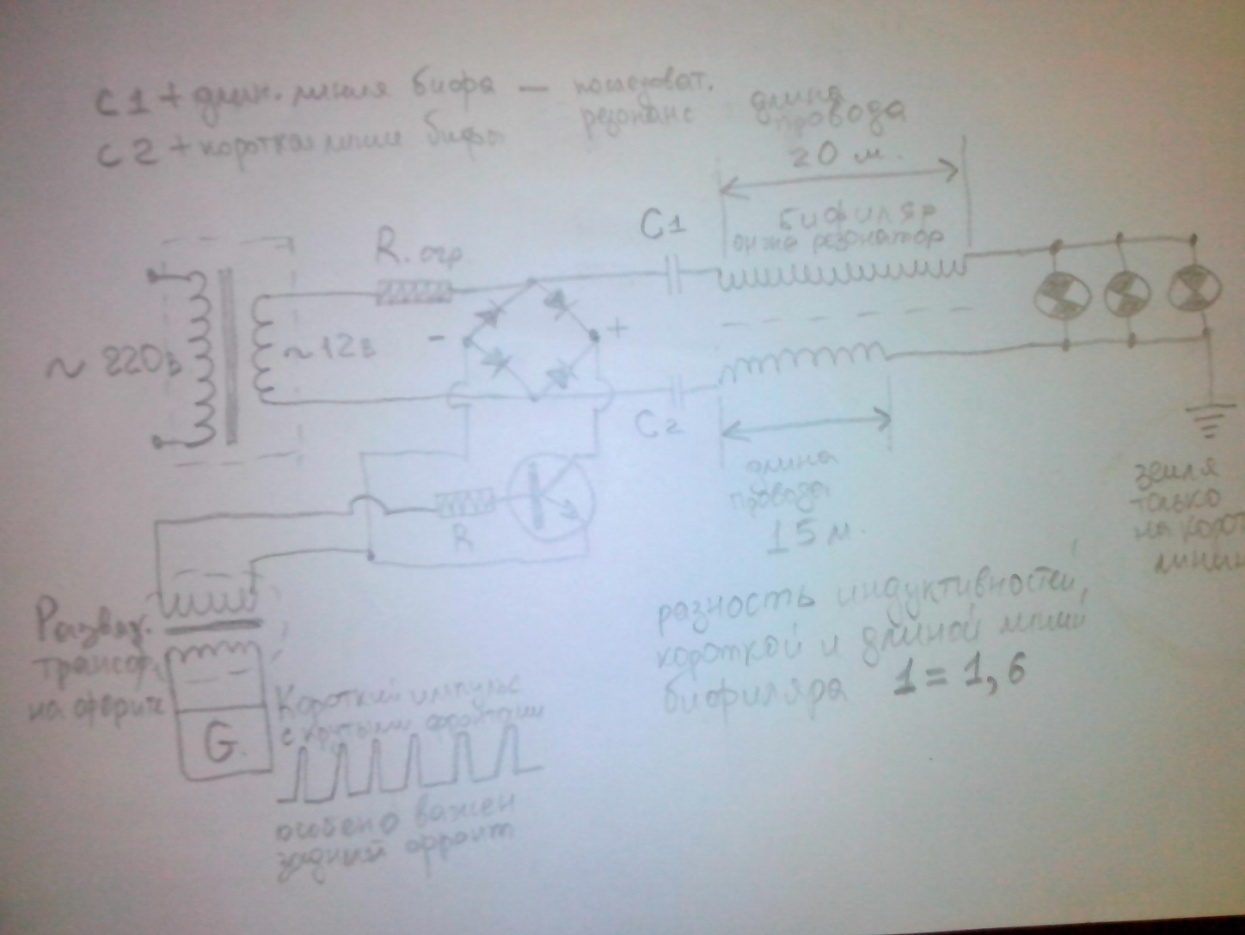 C1 + длин. линия бифа — последоват.
C2 + короткая линия бифы резонанс
длина
провода
20 м.
бифиляр
он же резонатор
C1
R.огр
~ 220в
~ 12в
-
+
C2
длина
провода
15 м.
R
земля
только
на корот
линии
Развяз.
трансф.
на ферите
G.
Короткий импульс
с крутыми фронтами
особено важен
задний фронт
разность индуктивностей,
короткой и длиной линий
биофиляра 1 = 1,6